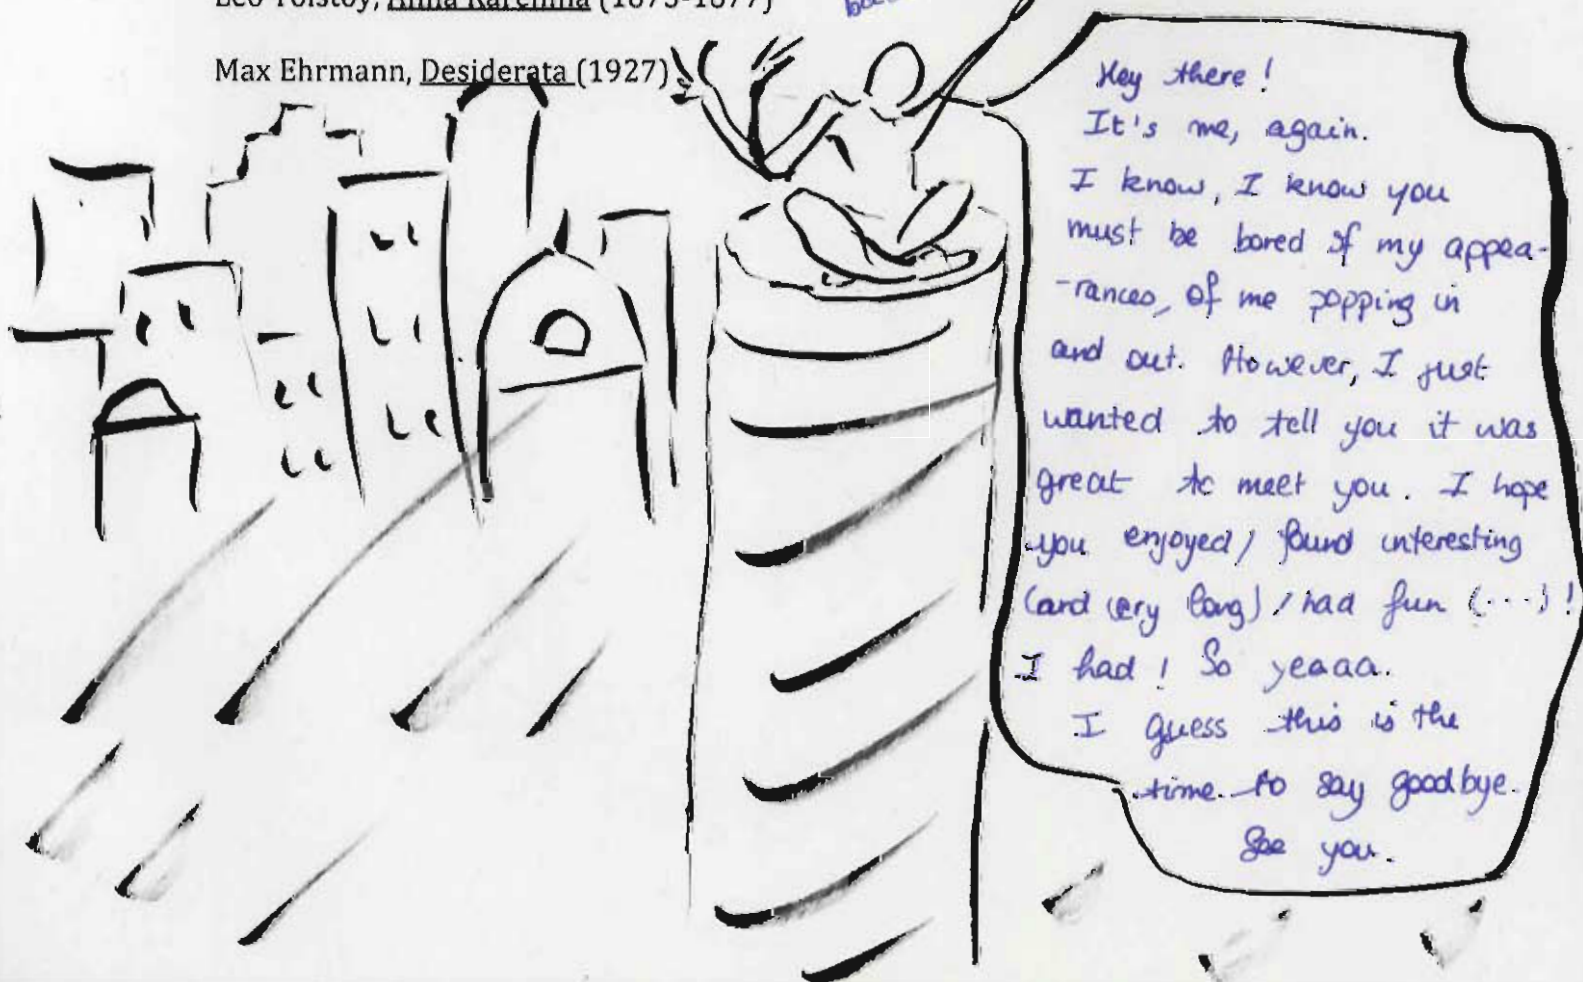 Leo Tolstoy, Anna Karenina (1873-1877)
Max Ehrmann, Desiderata (1927)
Hey there !
It's me, again.
I know, I know you
must be bored of my appea-
-rances, of me popping in
and out. However, I just
wanted to tell you it was
great to meet you. I hope
you enjoyed / found interesting
(and very long) / had fun (...) !
I had ! So yeaaa.
I guess this is the
time to say goodbye.
See you.